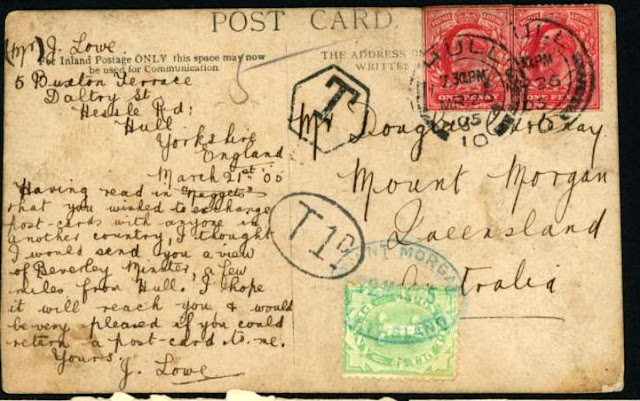 POST CARD.
(Mr) J. Lowe
For Inland Postage ONLY this space may now
be used for Communication.
THE ADDRESS ON
WRITTE
5 Buxton Terrace
Daltry St.
Hessle Rd;
Hull
Yorkshire
England
March 21st 05
Having read in "Nuggets"
that you wished to exchange
post-cards with anyone in
another country, I thought
I would send you a view
of Beverley Minster, a few
miles from Hull. I hope
it will reach you & would
be very pleased if you could
return a post-card to me.
Yours
J. Lowe
5
T
T 1d
Mr Douglas
Mount Morgan
Queensland
Australia
HULL
7.30PM
05
10
ONE PENNY
MOUNT MORGAN